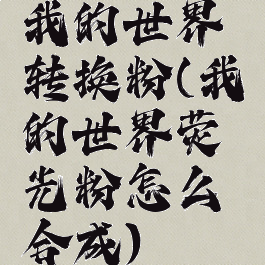 我的世界
转换粉(我
的世界荧
光粉怎么
合成)